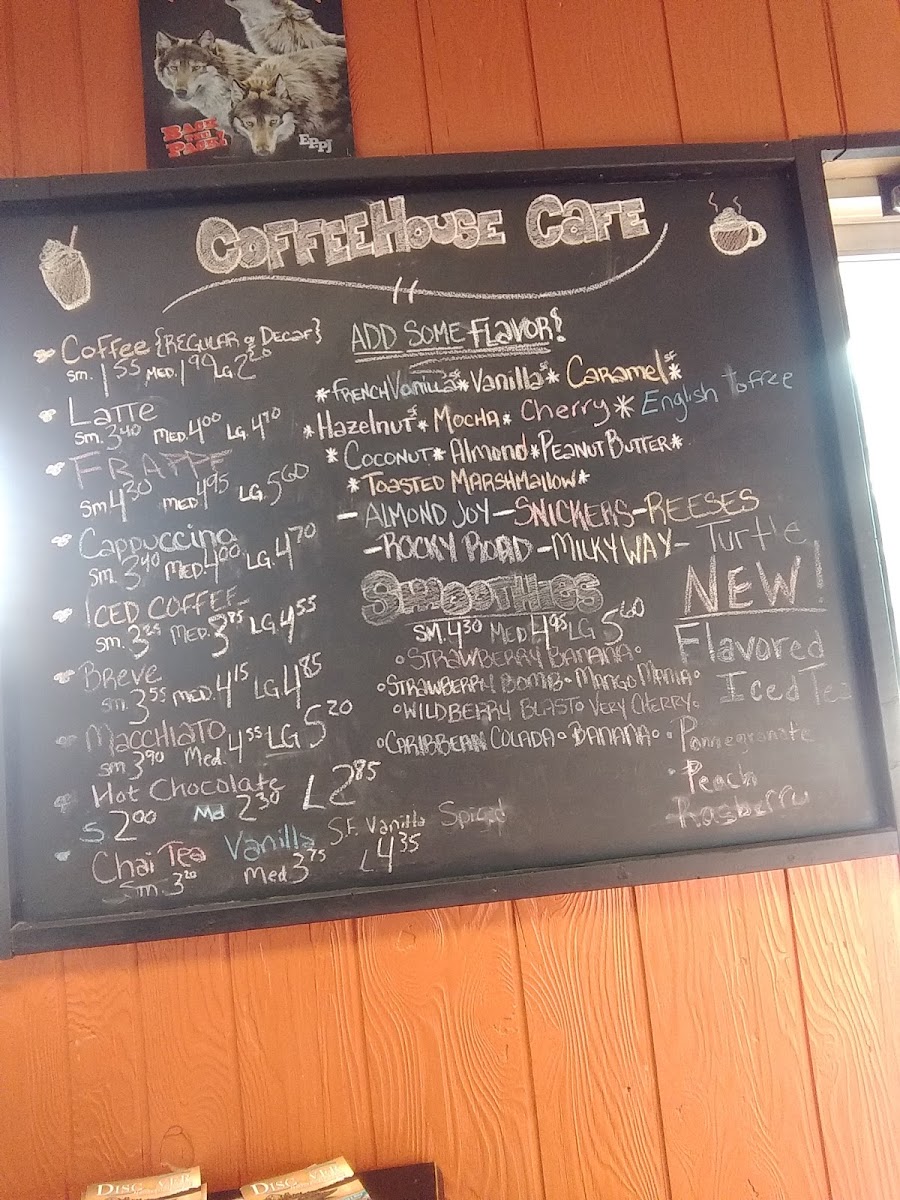 BACK
THE
PACK!
EPPJ
COFFEEHOUSE CAFE
Coffee {REGULAR or Decaf}
Sm. 1.55 MED. 1.90 LG. 2.20
Latte
Sm. 3.40 MED. 4.00 LG. 4.70
FRAPPE
Sm 4.30 MED 4.95 LG. 5.60
Cappuccino
Sm. 3.40 MED. 4.00 LG. 4.70
ICED COFFEE
Sm. 3.25 MED. 3.75 LG 4.55
Breve
Sm. 3.55 MED. 4.15 LG 4.85
Macchiato
Sm 3.90 Med. 4.55 LG 5.20
Hot Chocolate
S 2.00 Md 2.30 L 2.85
Chai Tea Vanilla S.F. Vanilla Spiced
Sm 3.20 Med 3.75 L 4.35
ADD SOME FLAVOR!
*FRENCH Vanilla SF * Vanilla SF * Caramel SF *
*Hazelnut SF * MOCHA * Cherry * English Toffee
*COCONUT*Almond*PEANUT BUTTER*
*TOASTED MARSHMALLOW*
-ALMOND JOY-SNICKERS-REESES
-ROCKY ROAD-MILKY WAY- Turtle
SMOOTHIES
SM. 4.30 MED 4.95 LG 5.60
STRAWBERRY BANANA
STRAWBERRY BOMB MANGO MANIA
WILDBERRY BLAST VERY CHERRY
CARIBBEAN COLADA BANANA
NEW!
Flavored
Iced Tea
Pomegranate
Peach
Rasberry
DISCOVER
DISCOVER